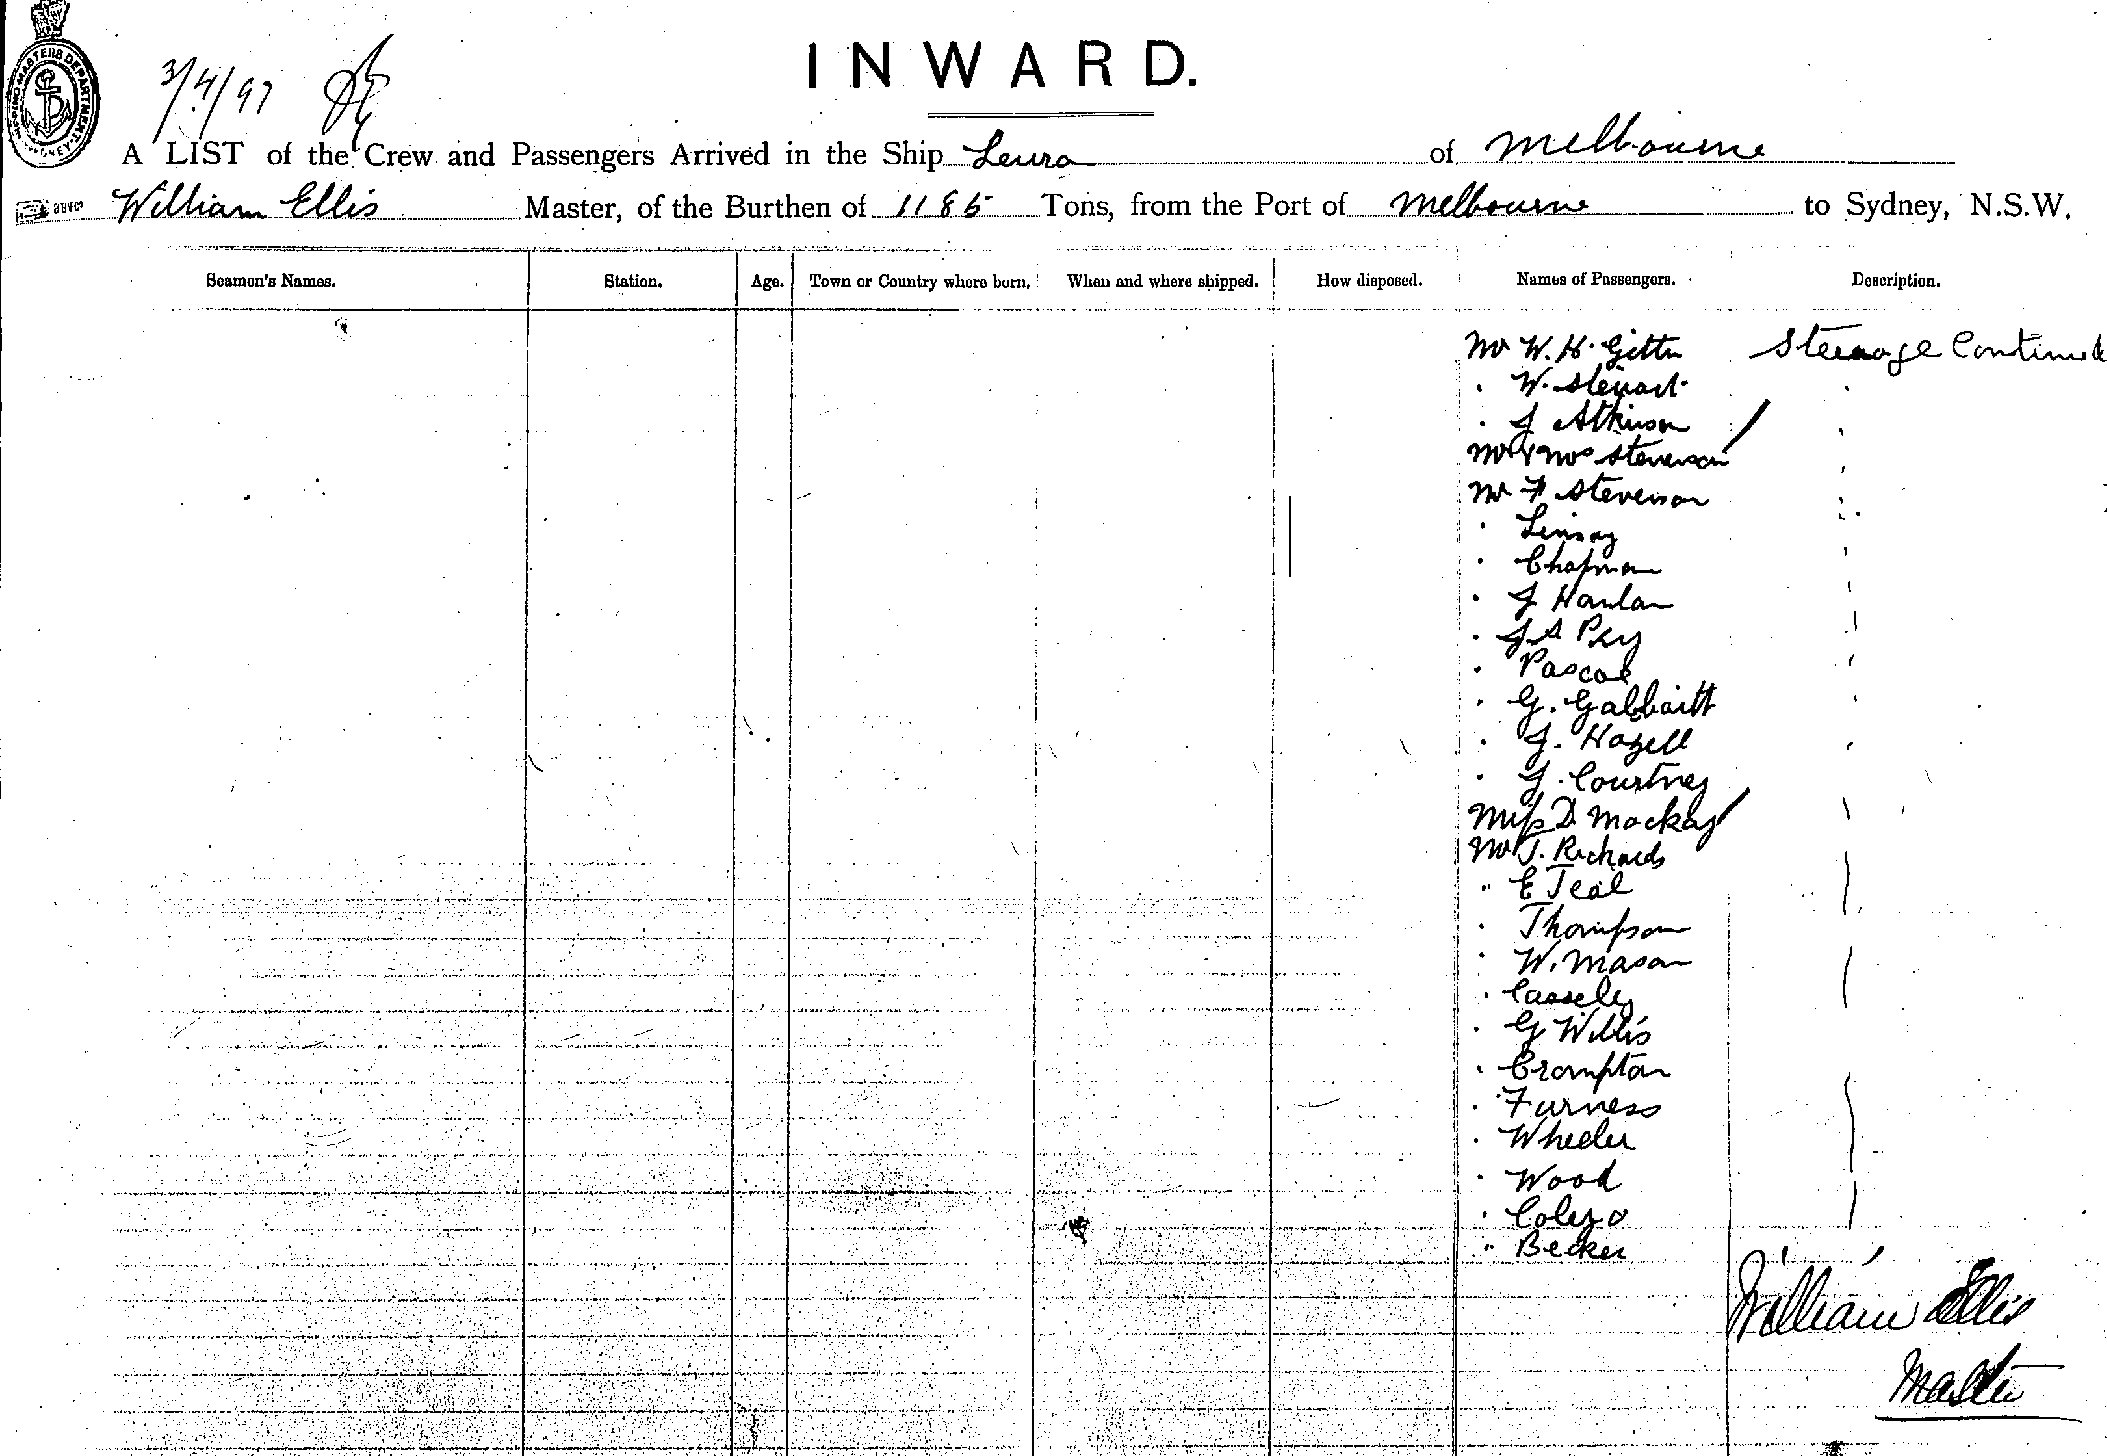 3/4/97
INWARD.
A LIST of the Crew and Passengers Arrived in the Ship Leura of Melbourne
William Ellis Master, of the Burthen of 1185 Tons, from the Port of Melbourne to Sydney, N.S.W.
Seamen's Names. Station. Age. Town or Country where born. When and where shipped. How disposed. Names of Passengers. Description.
Mr W. H. Steerage Continued
" W. Stewart
" J Atkinson
Mr & Mrs Stevenson
Mr F Stevenson
"
" Chapman
" J Hanlan
" J A
" Pascoe
" G. Galbraitt
" J. Hazell
" J. Courtney
Miss D Mackay
Mr J. Richards
" E Teal
" Thompson
" W. Mason
" Cassely
" G Willis
" Crompton
" Furness
" Wheeler
" Wood
"
" Becker
William Ellis
Master